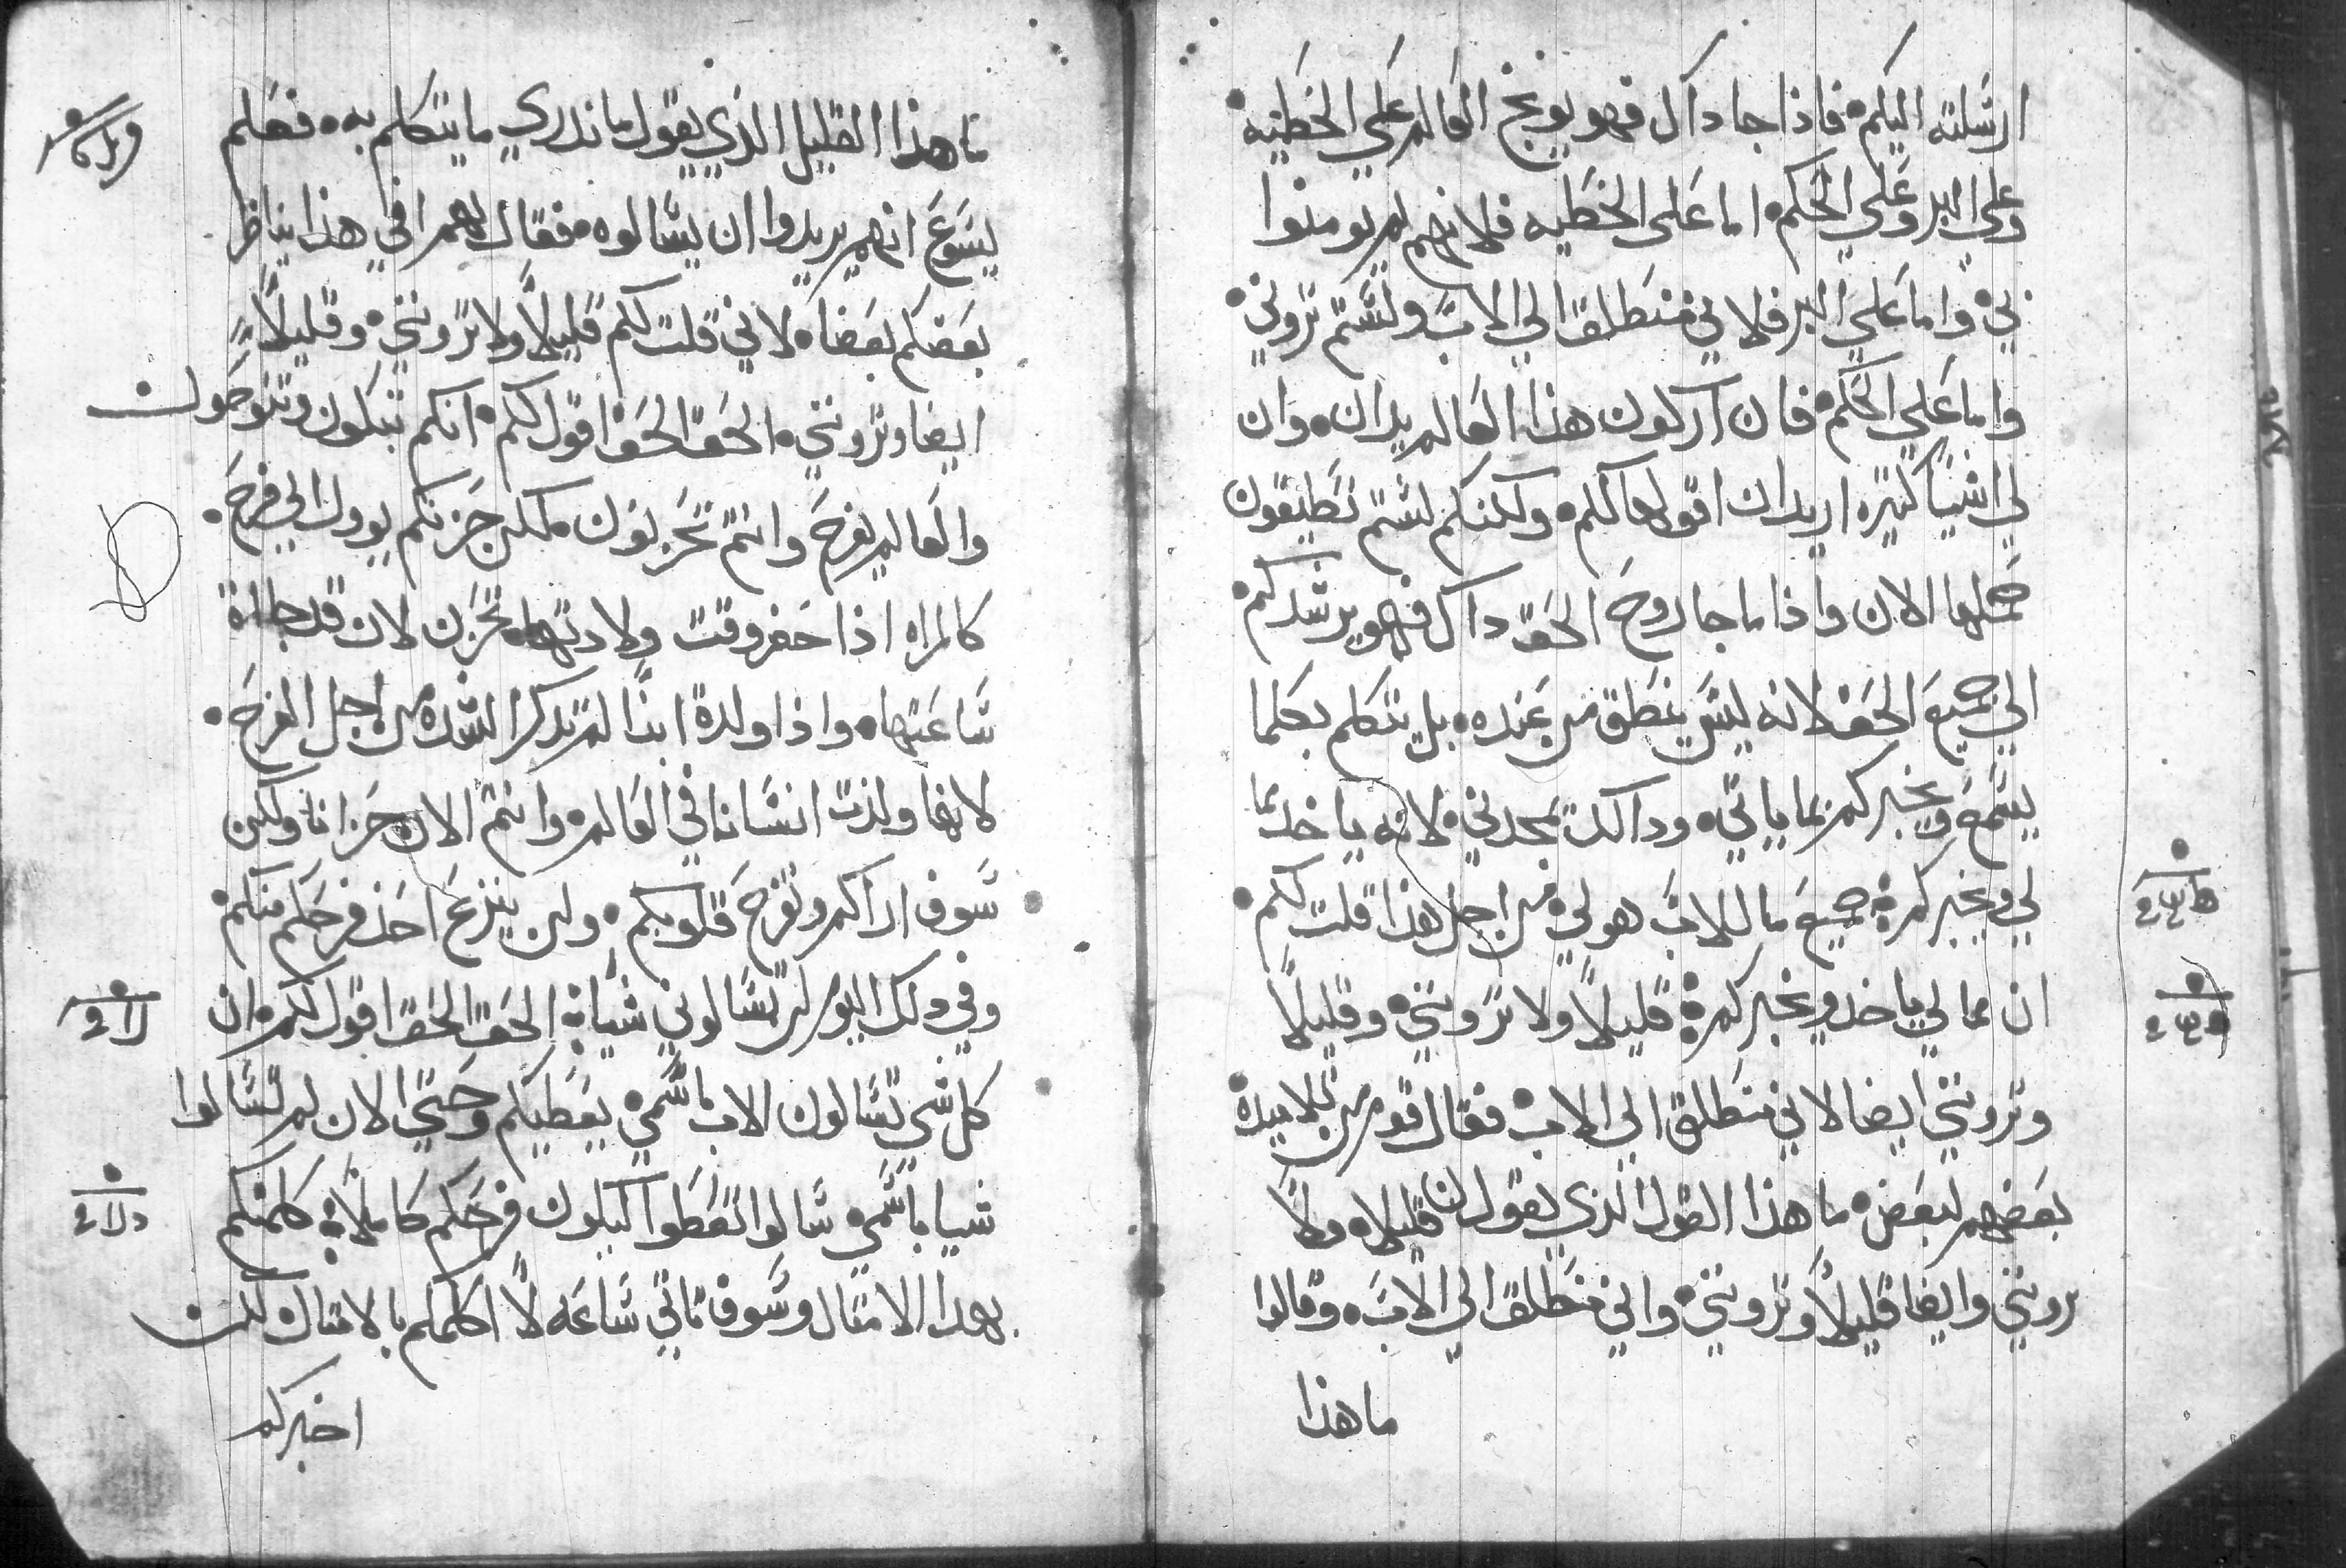 ارسلته اليكم فاذا جا داك فهو يوبخ العالم علي الخطيه
وعلي البر وعلي الحكم اما علي الخطيه فلانهم لم يومنوا
بي واما علي البر فلاني منطلق الي الاب ولستم تروني
واما علي الحكم فان اركون هذا العالم يدان وان
لي اشيا كثيره اريد ان اقولها لكم ولكنكم لستم تطيقون
حملها الان واذا ما جا روح الحق داك فهو يرشدكم
الي جميع الحق لانه ليس ينطق من عنده بل يتكلم بكلما
يسمع ويخبركم بما ياتي وداك يمجدني لانه ياخد مما
لي ويخبركم جميع ما للاب هو لي من اجل هذا قلت لكم
ان مما لي ياخد ويخبركم قليلا ولا تروني وقليلا
وتروني ايضا لاني منطلق الي الاب فقال قوم من تلاميده
بعضهم لبعض ما هذا القول الذي يقول لنا قليلا ولا
تروني وايضا قليلا وتروني واني منطلق الي الاب وقالوا
ما هذا
ما هذا القليل الذي يقول ما ندري ما يتكلم به فعلم
يسوع انهم يريدوا ان يسالوه فقال لهم افي هذا يناظر
بعضكم بعضا لاني قلت لكم قليلا ولا تروني وقليلا
ايضا وتروني الحق الحق اقول لكم انكم تبكون وتنوحون
والعالم يفرح وانتم تحزنون لكن حزنكم يوول الي فرح
كالمراه اذا حضر وقت ولادتها تحزن لان قد جاات
ساعتها واذا ولدة ابنا لم تدكر الشده من اجل الفرح
لانها ولدت انسانا في العالم وانتم الان حزانا ولكن
سوف اراكم وتفرح قلوبكم ولن ينزع احد فرحكم منكم
وفي دلك اليوم لن تسالوني شيا الحق الحق اقول لكم ان
كل شي تسالون الاب باسمي يعطيكم وحتي الان لم تسالوا
شيا باسمي سالوا تعطوا ليكون فرحكم كاملا كلمتكم
بهدا الامتال وسوف تاتي ساعه لا اكلمكم بالامتال لكن
اخبركم